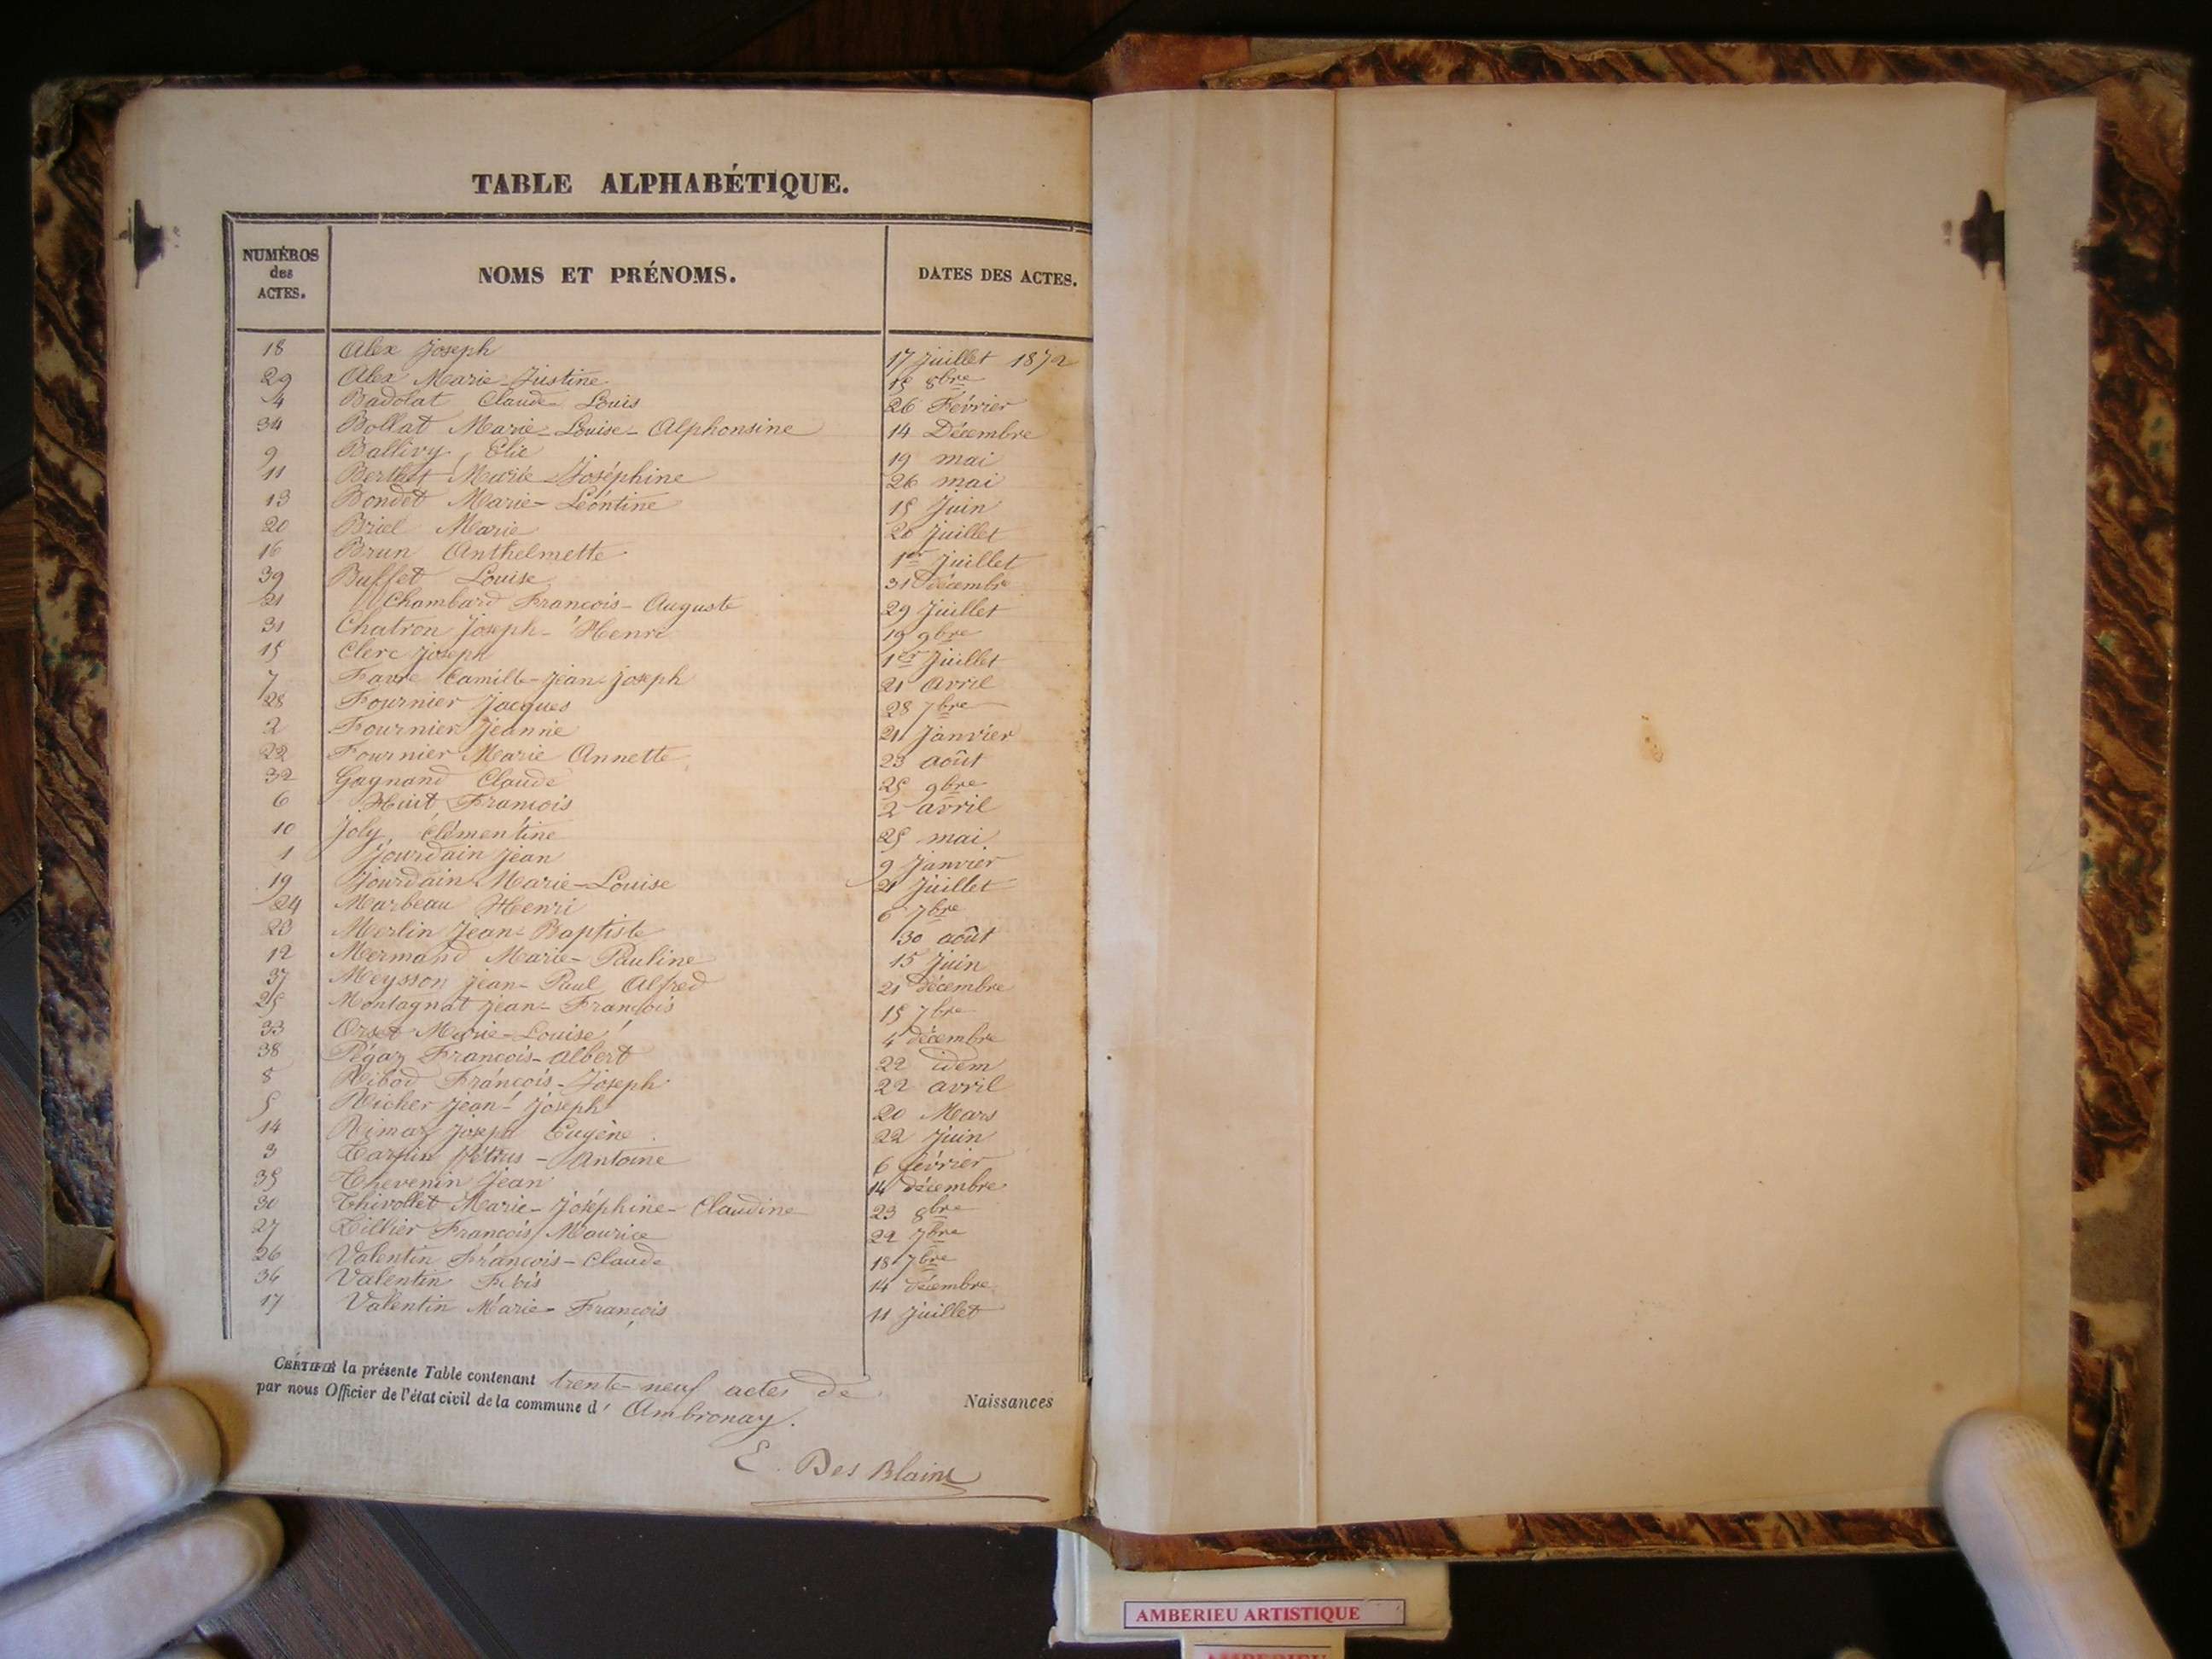 TABLE ALPHABÉTIQUE.
NUMÉROS des ACTES. NOMS ET PRÉNOMS. DATES DES ACTES.
18 Alex Joseph 17 Juillet 1872
29 Alex Marie-Justine 15 8bre
4 Badolat Claude Louis 26 Février
34 Bollat Marie-Louise-Alphonsine 14 Décembre
9 Ballivy Élie 19 mai
11 Berthet Marie Joséphine 26 mai
13 Bondet Marie-Léontine 15 Juin
20 Briel Marie 20 Juillet
16 Brun Anthelmette 1er Juillet
39 Buffet Louise 31 Décembre
21 Chambard François-Auguste 29 Juillet
31 Chatron Joseph-Henri 19 9bre
15 Clerc Joseph 1er Juillet
7 Favre Camille-Jean-Joseph 21 Avril
28 Fournier Jacques 28 7bre
2 Fournier Jeanne 21 Janvier
22 Fournier Marie Annette 23 août
32 Gagnand Claude 25 9bre
6 Huit François 2 avril
10 Joly Clémentine 25 mai
1 Jourdain Jean 9 Janvier
19 Jourdain Marie-Louise 21 Juillet
24 Marbeau Henri 6 7bre
23 Merlin Jean-Baptiste 30 août
12 Mermand Marie-Pauline 15 Juin
37 Meysson Jean-Paul Alfred 21 Décembre
25 Montagnat Jean-François 15 7bre
33 Orset Marie-Louise 4 décembre
38 Pégaz François-Albert 22 idem
8 Ribod François-Joseph 22 avril
5 Richer Jean-Joseph 20 Mars
14 Rimaz Joseph Eugène 22 Juin
3 Pétrus-Antoine 6 février
35 Thevenin Jean 14 décembre
30 Thivollet Marie-Joséphine-Claudine 23 8bre
27 Tillier François Maurice 22 7bre
26 Valentin François-Claude 18 7bre
36 Valentin 14 décembre
17 Valentin Marie-François 11 Juillet
CERTIFIÉ la présente Table contenant trente-neuf actes de Naissances
par nous Officier de l'état civil de la commune d' Ambronay.
E. Des Blains
AMBERIEU ARTISTIQUE
AMBERIEU